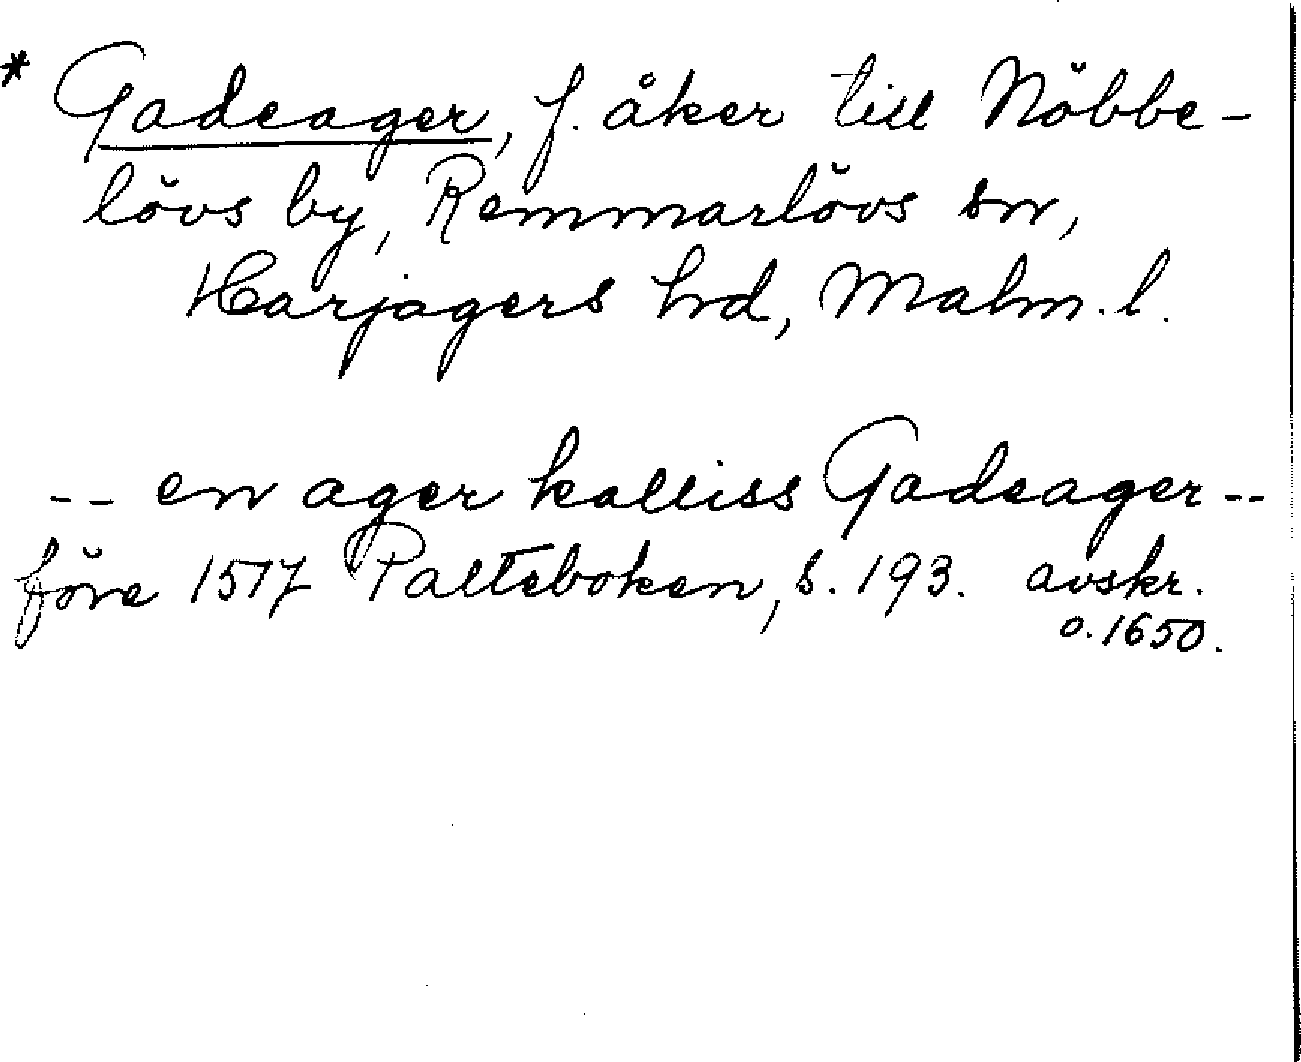 * Gadeager, f. åker till Nöbbe-
lövs by, Remmarlövs sn,
Harjagers hd, Malm. l.
-- en ager kalliss Gadeager --
före 1517 Palteboken, s. 193. avskr.
o. 1650.